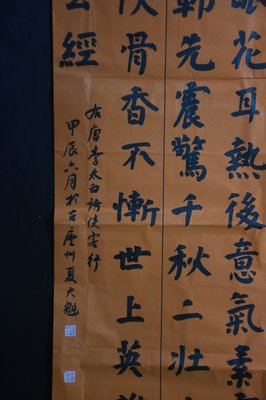 眼花耳熱後意氣素
鄲先震驚千秋二壯
俠骨香不慚世上英
玄經
右唐李太白詩俠客行
甲辰六月於古廬州夏大魁